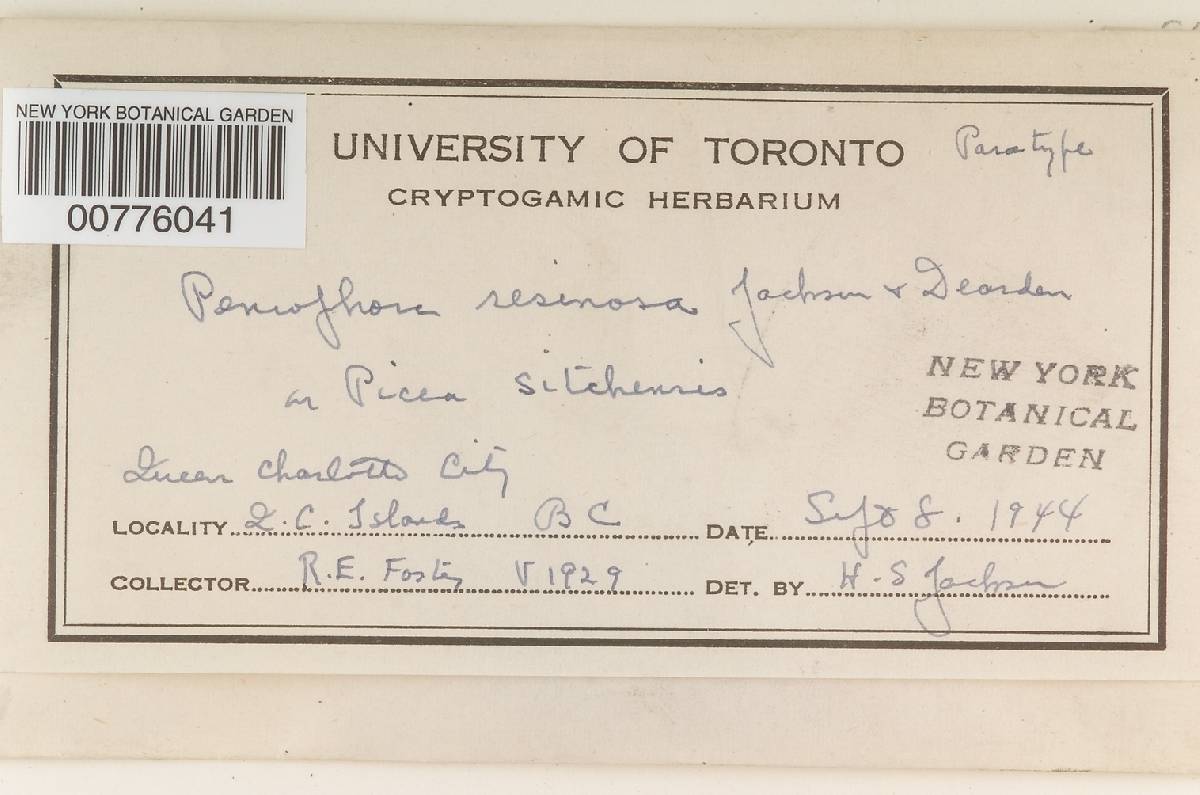 NEW YORK BOTANICAL GARDEN
00776041
UNIVERSITY OF TORONTO
Paratype
CRYPTOGAMIC HERBARIUM
Peniophora resinosa Jackson & Dearden
on Picea sitchensis
NEW YORK
BOTANICAL
GARDEN
Queen Charlotte City
LOCALITY Q.C. Islands B C DATE Sept 8. 1944
COLLECTOR R.E. Foster V1929 DET. BY H.S Jackson